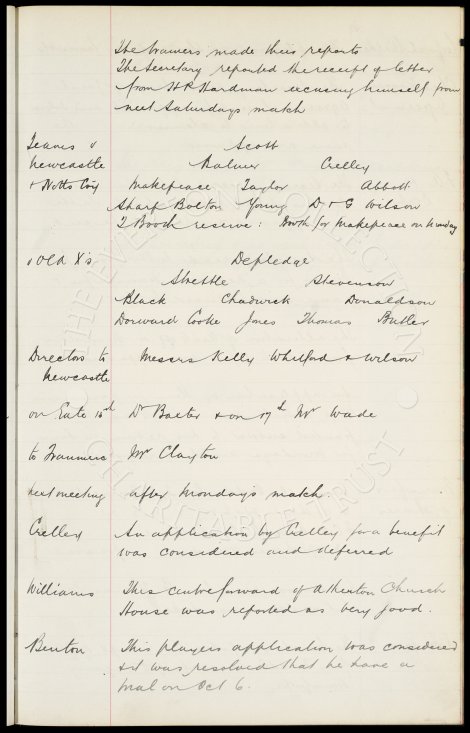 The trainers made their reports
The Secretary reported the receipt of letter
from H P Hardman excusing himself from
next Saturdays match
Teams v Scott
Newcastle Balmer Crelley
& Notts Co'y Makepeace Taylor Abbott
Sharp Bolton Young D & G Wilson
T Booth reserve: Booth for Makepeace on Monday
v Old X's Depledge
Strettle Stevenson
Black Chadwick Donaldson
Dorward Cooke Jones Thomas Butler
Directors to Messrs Kelly Whitford & Wilson
Newcastle
on Gate 15th Dr Baxter & on 17th Mr Wade
to Tranmere Mr Clayton
next meeting after Mondays match.
Crelley An application by Crelley for a benefit
was considered and deferred
Williams This centre forward of Atherton Church
House was reported as very good.
Benton This players application was considered
& it was resolved that he have a
trial on Oct 6.
THE EVERTON COLLECTION
CHARITABLE TRUST